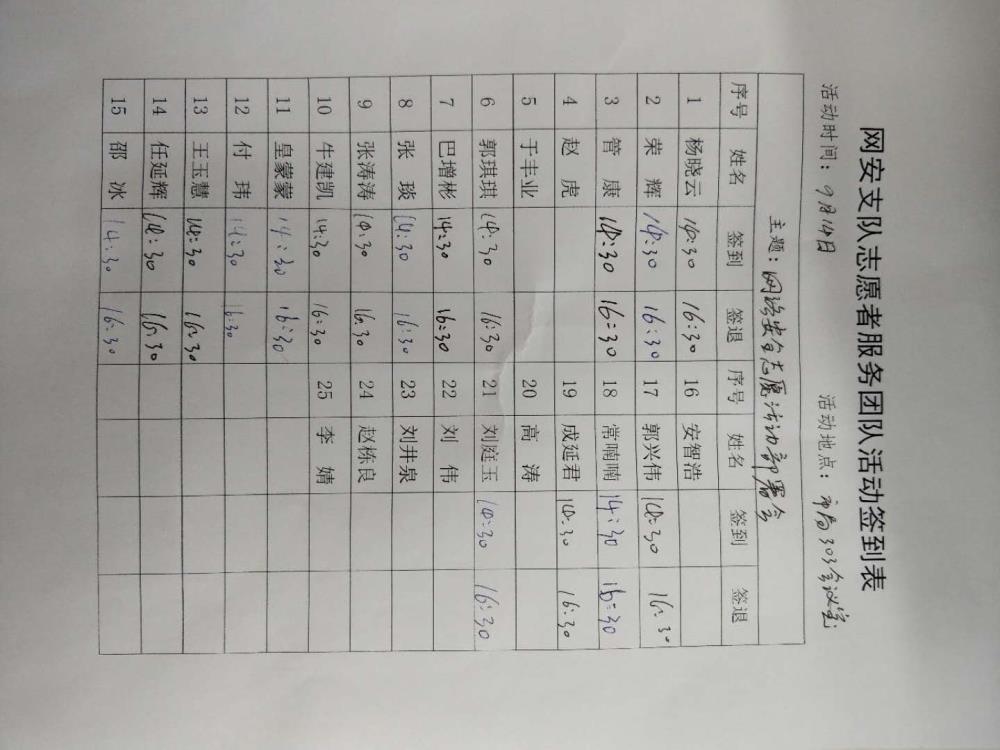 网安支队志愿者服务团队活动签到表
活动时间：9月14日 活动地点：市局303会议室
主题：网络安全志愿活动部署会
序号 姓名 签到 签退 序号 姓名 签到 签退
1 杨晓云 14:30 16:30 16 安智浩
2 荣辉 14:30 16:30 17 郭兴伟 14:30 16:30
3 管康 14:30 16:30 18 常喃喃 14:30 16:30
4 赵虎 19 成延君 14:30 16:30
5 于丰业 20 高涛
6 郭琪琪 14:30 16:30 21 刘庭玉 14:30 16:30
7 巴增彬 14:30 16:30 22 刘伟
8 张琰 14:30 16:30 23 刘井泉
9 张涛涛 14:30 16:30 24 赵栋良
10 牛建凯 14:30 16:30 25 李婧
11 皇蒙蒙 14:30 16:30
12 付玮 14:30 16:30
13 王玉慧 14:30 16:30
14 任延辉 14:30 16:30
15 邵冰 14:30 16:30